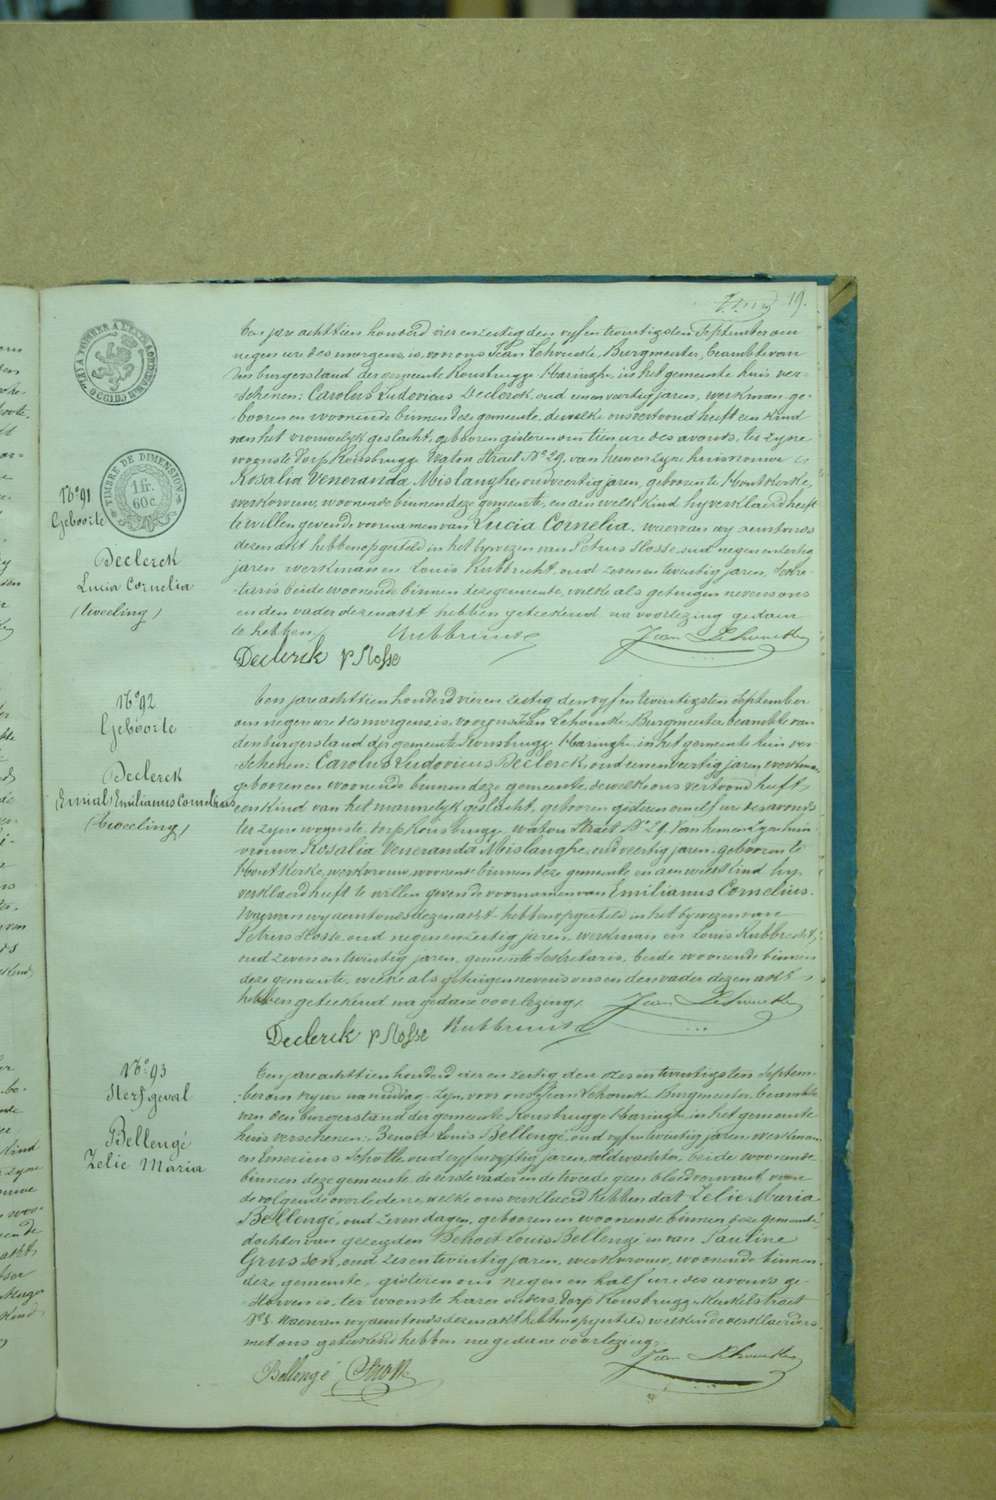 19.
Ten jare achttien honderd vier en zestig den vyf en twintigsten September om
negen ure des morgens, is voor ons Jean Lehoucke, Burgmeester, beambte van
den burgerstand der gemeente Rousbrugge-Haringhe, in het gemeente huis ver-
schenen: Carolus Ludovicus Declerck, oud een en veertig jaren, werkman, ge-
booren en woonende binnen deze gemeente, dewelke ons vertoond heeft een kind
van het vrouwelyk geslacht, gebooren gisteren om tien ure des avonds, ter zyne
woonste dorp Rousbrugge Waton Straet No 29, van hem en zyne huisvrouwe
Rosalia Veneranda Mislanghe, oud veertig jaren, gebooren te Houtkerke,
werkvrouw, woonende binnen deze gemeente, en aen welk kind hy verklaerd heeft
te willen geven de voornamen van Lucia Cornelia. Waervan wy aenstonds
dezen akt hebben opgesteld in het bywezen van Petrus Hosse, oud negen en zestig
jaren werkman en Louis Rubbrecht, oud zeven en twintig jaren, Sekre-
taris beide woonende binnen deze gemeente, welke als getuigen nevens ons
en den vader dezen akt hebben geteekend na voorlezing gedaen
te hebben.
Declerck P Hosse
TIMBRE DE DIMENSION
1 fr.
60 c.
No 91
Geboorte
Declerck
Lucia Cornelia
(tweeling)
No 92
Geboorte
Declerck
Emilianus Cornelius
(tweeling)
Ten jare achttien honderd vier en zestig den vyf en twintigsten September
om negen ure des morgens, is voor ons Jean Lehoucke, Burgmeester beambte van
den burgerstand der gemeente Rousbrugge-Haringhe, in het gemeente huis ver-
schenen: Carolus Ludovicus Declerck, oud een en veertig jaren, werkman,
gebooren en woonende binnen deze gemeente, dewelke ons vertoond heeft
een kind van het mannelyk geslacht, gebooren gisteren om elf ure des avonds
ter zyne woonste, dorp Rousbrugge, Waton Straet No 29, van hem en zyne huis-
vrouwe Rosalia Veneranda Mislanghe, oud veertig jaren, gebooren te
Hout Kerke, werkvrouw, woonende binnen deze gemeente en aen welk kind hy
verklaerd heeft te willen geven de voornamen van Emilianus Cornelius.
Waervan wy aenstonds dezen akt hebben opgesteld in het bywezen van
Petrus Hosse, oud negen en zestig jaren, werkman en Louis Rubbrecht,
oud zeven en twintig jaren, gemeente Sekretaris, beide woonende binnen
deze gemeente, welke als getuigen nevens ons en den vader dezen akt
hebben geteekend na gedane voorlezing.
Declerck P Hosse
No 93
Sterfgeval
Bellengé
Zelie Maria
Ten jare achttien honderd vier en zestig den zes en twintigsten Septem-
ber om vyf ure namiddag, zyn, voor ons Jean Lehoucke Burgmeester, beambte
van den burgerstand der gemeente Rousbrugge Haringhe in het gemeente
huis verschenen: Benoit Louis Bellengé, oud vyf en twintig jaren, werkman,
en Emerius Schotte oud vyf en vyftig jaren, veldwachter, beide woonende
binnen deze gemeente, de eerste vader en de tweede geen bloedverwant van
de volgende overledene, welke ons verklaerd hebben dat Zelie Maria
Bellengé, oud zeven dagen, gebooren en woonende binnen deze gemeente,
dochter van gezegden Benoit Louis Bellengé en van Pauline
Grusson, oud zes en twintig jaren, werkvrouw, woonende binnen
deze gemeente, gisteren om negen en half ure des avonds ge-
storven is, ter woonste harer ouders, dorp Rousbrugge
No 8. Waervan wy aenstonds dezen akt hebben opgesteld welken de verklaerders
met ons geteekend hebben na gedane voorlezing.
Bellengé